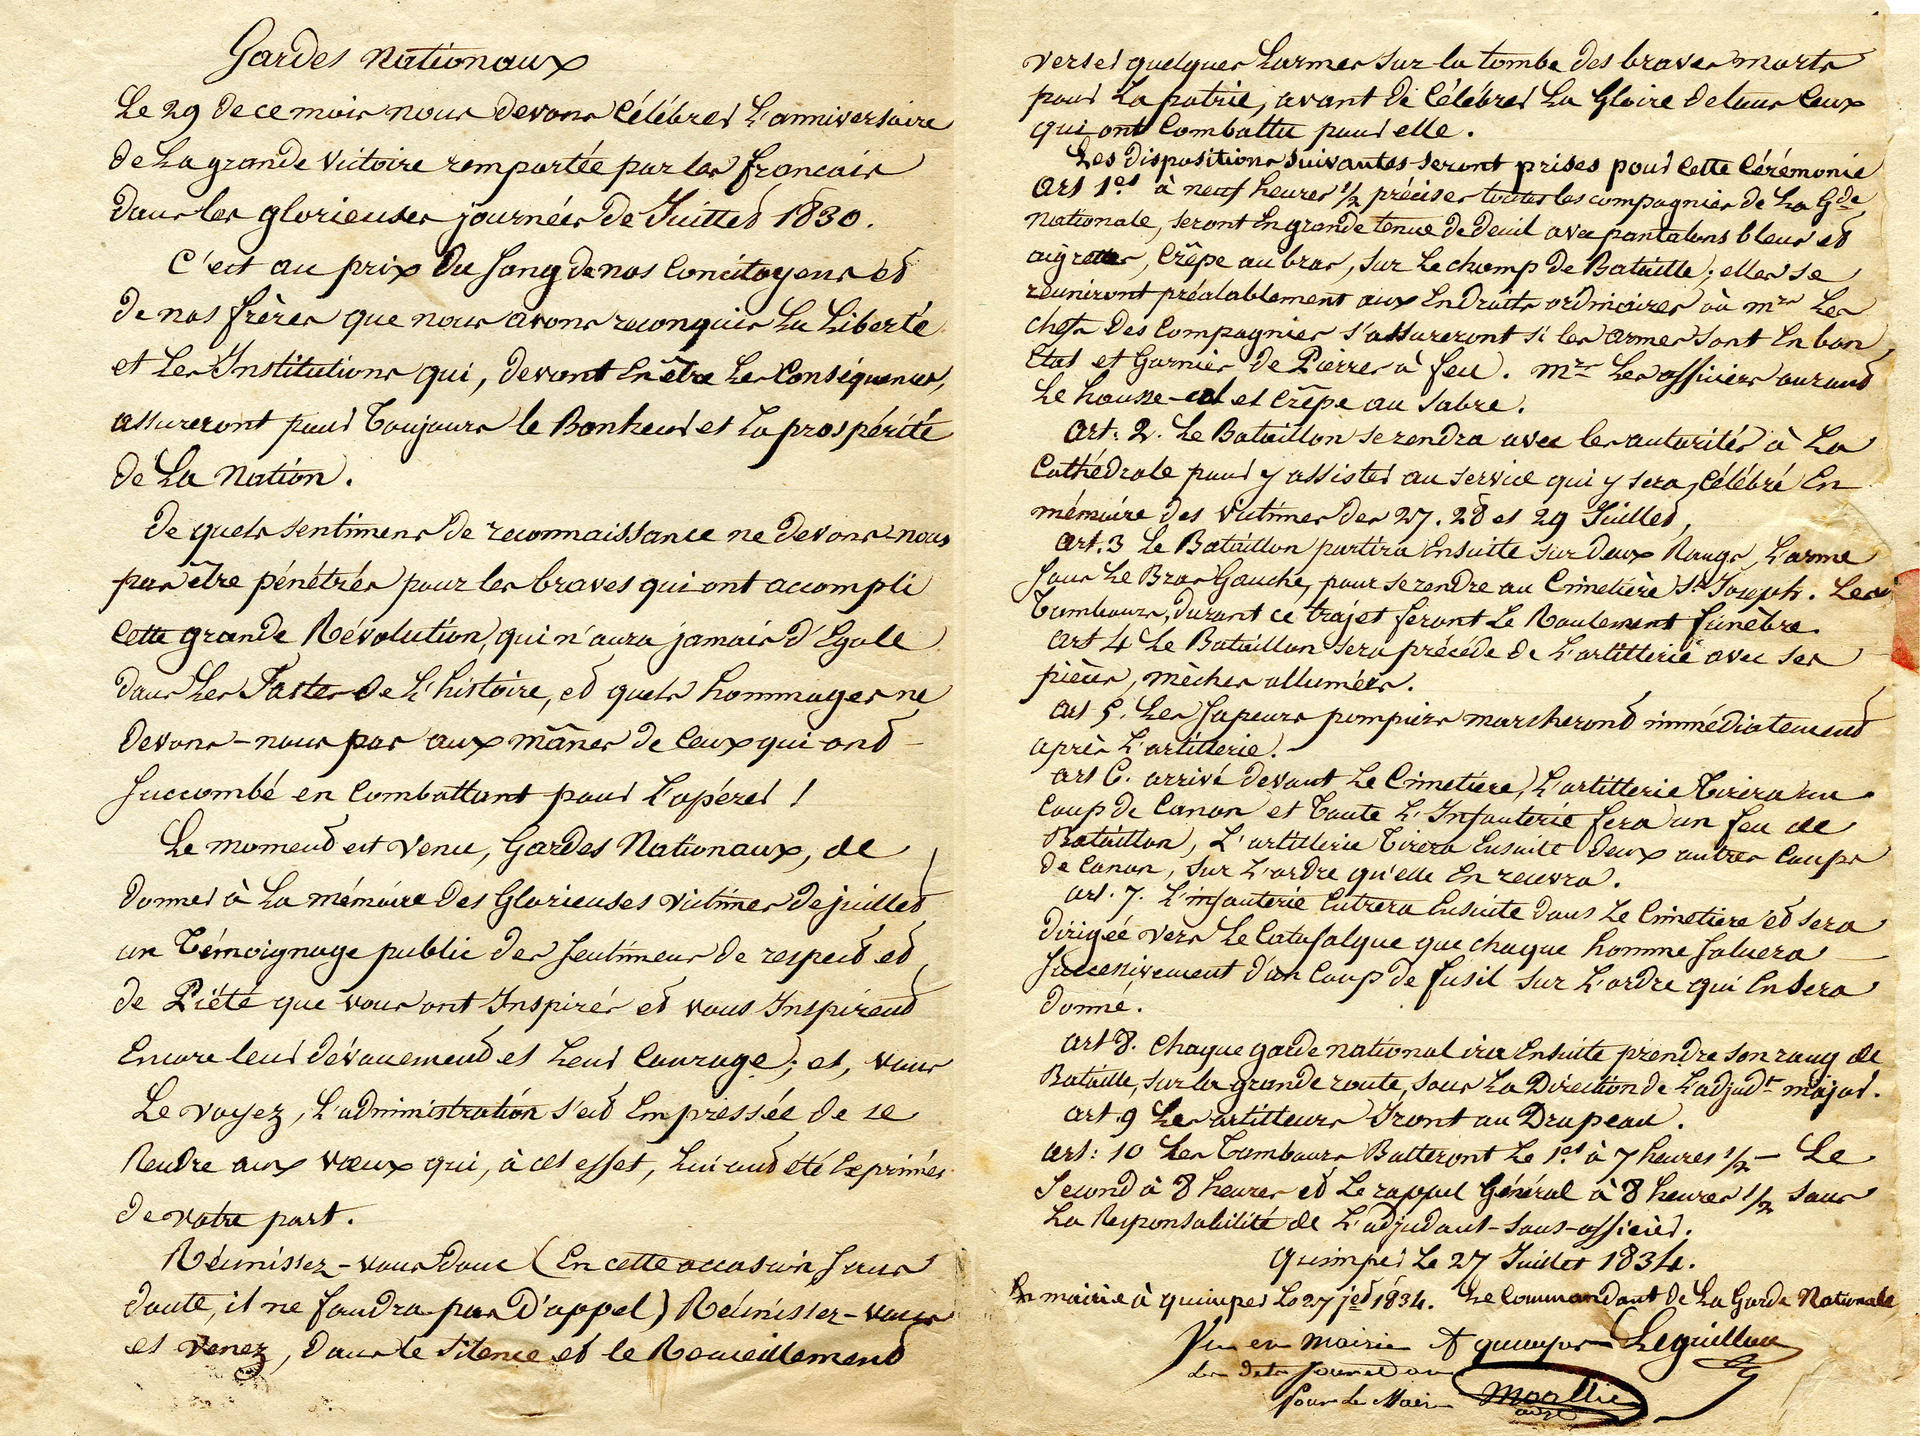 Gardes Nationaux
Le 29 de ce mois nous devons Célébrer L'anniversaire
de La grande Victoire remportée par les francais
dans les glorieuses journées de Juillet 1830.
C'est au prix du sang de nos Concitoyens et
de nos frères que nous avons reconquis La Liberté
et Les Institutions qui, devant En être Les Conséquences,
assureront pour Toujours le Bonheur et La prospérité
de La Nation.
de quels sentimens de reconnaissance ne devons-nous
pas être pénétrés pour les braves qui ont accompli
Cette grande Révolution, qui n'aura jamais d'Egale
dans Les Fastes de L'histoire, et quels hommages ne
devons-nous pas aux mânes de Ceux qui ont
Succombé en Combattant pour L'opérer !
Le moment est venu, Gardes Nationaux, de
donner à La mémoire des Glorieuses victimes de juillet
un Témoignage public des sentimens de respect et
de Piété que vous ont Inspirés et vous Inspirent
Encore leur dévouement et Leur Courage; et, vous
Le voyez, L'administration s'est Empressée de se
Rendre aux vœux qui, à cet effet, Lui ont été Exprimés
de votre part.
Réunissez-vous donc (En cette occasion sans
doute, il ne faudra pas D'appel) Réunissez-vous
et venez, dans le silence et le Recueillement
verser quelques Larmes sur la tombe des braves morts
pour La patrie, avant de Célébrer La Gloire de tous Ceux
qui ont Combattu pour elle.
Les dispositions suivantes seront prises pour Cette Cérémonie
Art 1er à neuf heures 1/2 précises toutes les compagnies de La Gde
Nationale, seront En grande tenue de deuil avec pantalons bleus et
aigrettes, Crêpe au bras, sur Le champ de Bataille; elles se
réuniront préalablement aux Endroits ordinaires où mrs Les
chefs des Compagnies s'assureront si les armes sont En bon
Etat et Garnies de Pierres à feu. Mrs Les officiers auront
Le hausse-col et Crêpe au sabre.
Art: 2. Le Bataillon se rendra avec les autorités à La
Cathédrale pour y assister au service qui y sera Célébré En
mémoire des victimes des 27. 28 et 29 Juillet,
Art. 3 Le Bataillon partira Ensuite sur deux Rangs, L'arme
sous Le Bras Gauche, pour se rendre au Cimetière St Joseph. Les
Tambours, durant ce trajet feront Le Roulement funèbre.
Art 4 Le Bataillon sera précédé de L'artillerie avec ses
pièces, mèches allumées.
Art 5. Les Sapeurs pompiers marcheront immédiatement
après L'artillerie.
Art 6. arrivé devant Le Cimetière, L'artillerie Tirera un
Coup de Canon et Toute L'Infanterie fera un feu de
Bataillon, L'artillerie Tirera Ensuite deux autres Coups
de Canon, sur L'ordre qu'elle En recevra.
Art. 7. L'infanterie Entrera Ensuite dans Le Cimetière et sera
dirigée vers Le Catafalque que chaque homme saluera
successivement d'un Coup de fusil sur L'ordre qui En sera
donné.
Art 8. Chaque garde national ira Ensuite prendre son rang de
Bataille, sur la grande route, sous La Direction de L'adjudt major.
Art. 9 Les artilleurs Iront au Drapeau.
Art: 10 Les Tambours Batteront Le 1er à 7 heures 1/2 - Le
Second à 8 heures et Le rappel Général à 8 heures 1/2 sous
La Responsabilité de L'adjudant-sous-officier.
Quimper Le 27 Juillet 1834.
En mairie à quimper Le 27 jet 1834. Le Commandant de La Garde Nationale
Vu en Mairie A quimper Leguillou
Les dits Jour et an
Pour Le Maire